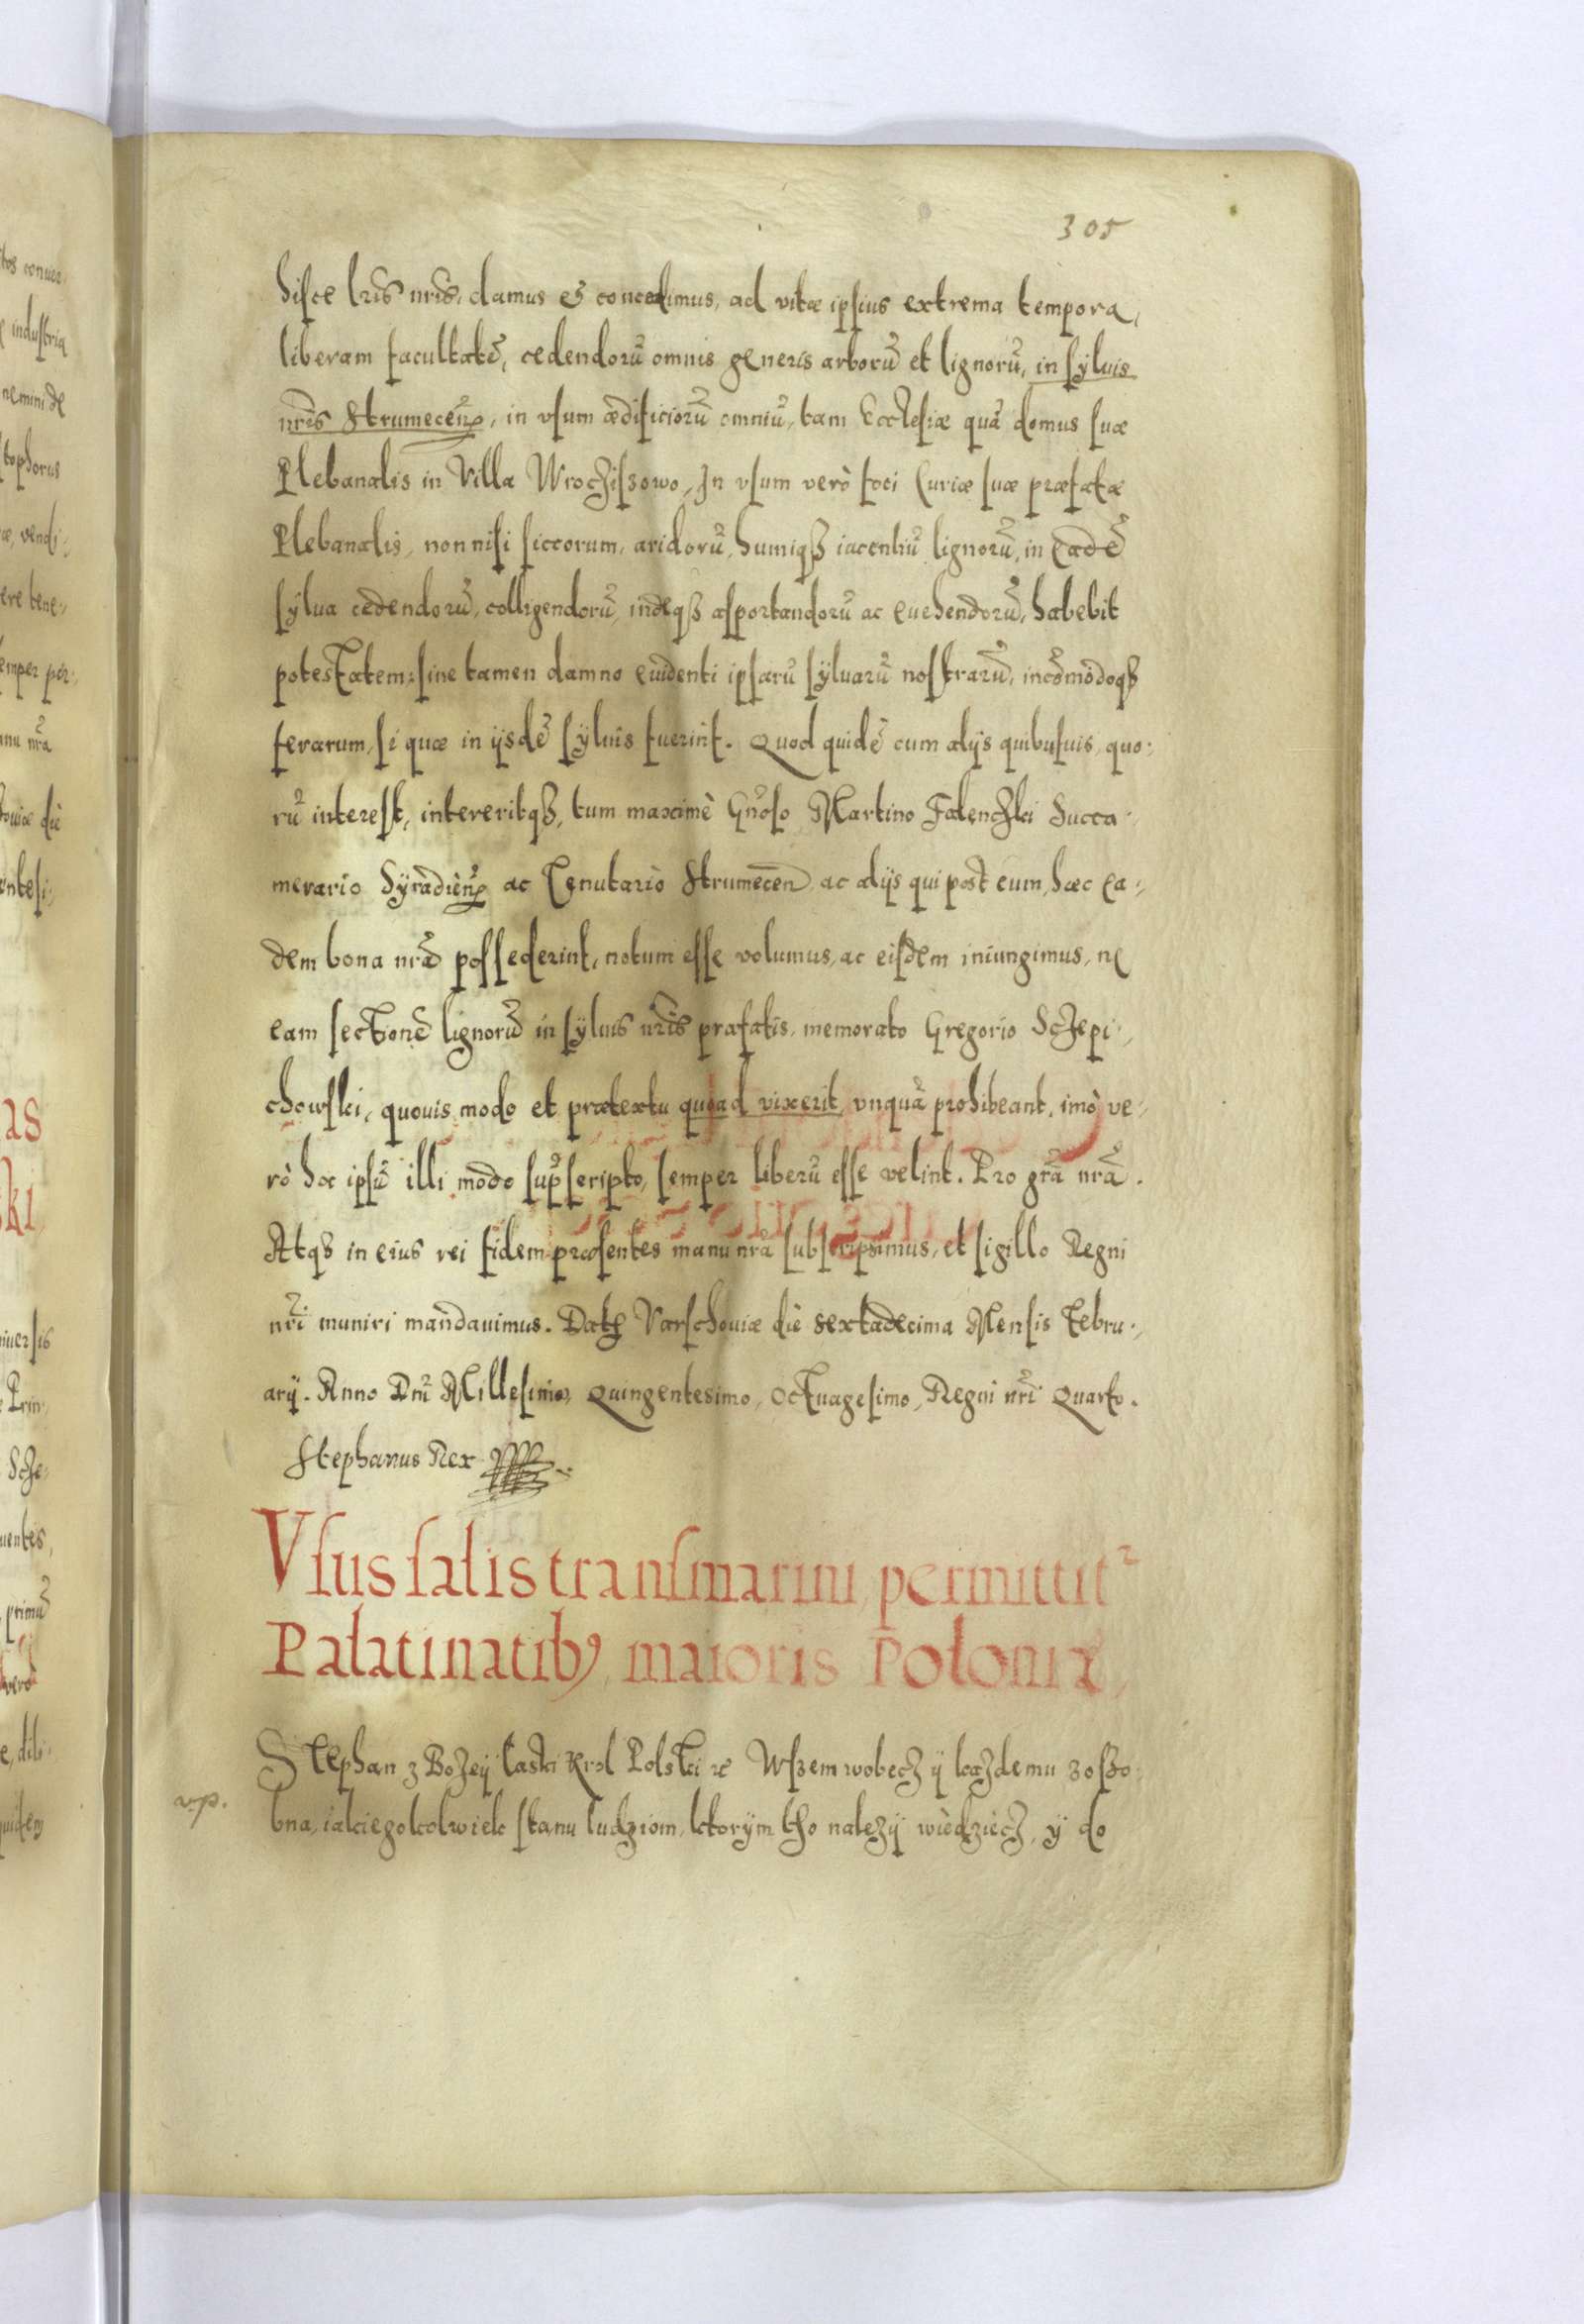 305
hisce lr̃is nr̃is, damus et concedimus, ad vitæ ipsius extrema tempora,
liberam facultatẽ, cedendorũ omnis generis arborũ et lignorũ, in syluis
nr̃is Strumeceñ, in vsum ædificiorũ omniũ, tam Ecclesiæ quã domus suæ
Plebanalis in Villa Wrocziszowo, In vsum verò foci Curiæ suæ præfatæ
Plebanalis, non nisi siccorum, aridorũ, humiqȝ iacentiũ lignorũ, in eadẽ
sylua cedendorũ, colligendorũ, indeqȝ asportandorũ ac euehendorũ, habebit
potestatem: sine tamen damno euidenti ipsarũ syluarũ nostrarũ, incõmodoqȝ
ferarum, si quæ in ijsdẽ syluis fuerint. Quod quidẽ cum alijs quibusuis, quo-
rũ interest, intereritqȝ, tum maximè Gñoso Martino Falenczki Succa-
merario Syradieñ ac Tenutario Strumeceñ ac alijs qui post eum, hæc ea-
dem bona nrã possederint, notum esse volumus, ac eisdem iniungimus, ne
eam sectionẽ lignorũ in syluis nr̃is præfatis, memorato Gregorio Sczepi-
chowski, quouis modo et prætextu quoad vixerit, vnquã prohibeant, imò ve-
rò hoc ipsũ illi modo sup̃scripto, semper liberũ esse velint. Pro gr̃a nr̃a.
Atqȝ in eius rei fidem præsentes manu nrã subscripsimus, et sigillo Regni
nr̃i muniri mandauimus. Dat. Varschouiæ die sextadecima Mensis Febru-
arij. Anno Dñi Millesimo, Quingentesimo, Octuagesimo, Regni nr̃i Quarto.
Stephanus Rex
Vsus salis transmarini, permittit̃
Palatinatib9, maioris Poloniæ,
Stephan z Bozey łaski Krol Polski etc Wszem wobecz ÿ kazdemu zoszo-
bna, iakiegokolwiek stanu ludziom, ktorÿm tho nalezÿ wiedziecz, ÿ do